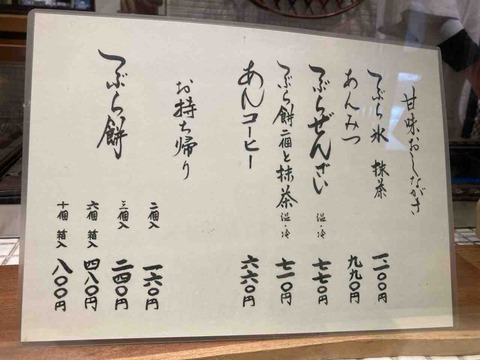 甘味おしながき
つぶら氷 抹茶 一、一〇〇円
あんみつ 九九〇円
つぶらぜんざい 温・冷 七七〇円
つぶら餅二個と抹茶 温・冷 七一〇円
あんコーヒー 六六〇円
お持ち帰り
つぶら餅
二個入 一六〇円
三個入 二四〇円
六個 箱入 四八〇円
十個 箱入 八〇〇円